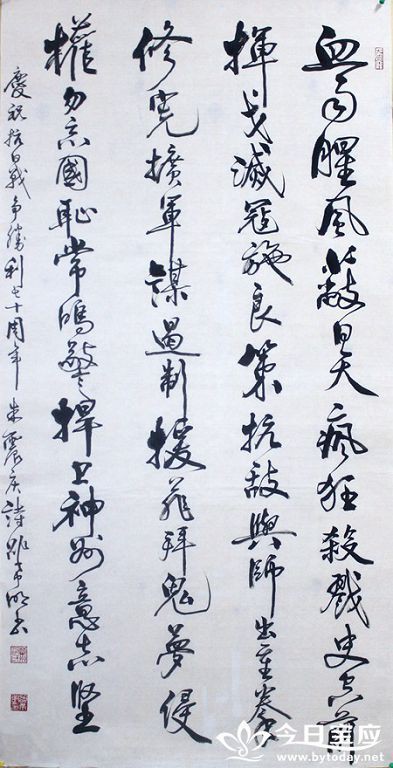 血雨腥風蔽日天瘋狂殺戮史空前
揮戈滅寇施良策抗敵興師出重拳
修憲擴軍謀遏制援菲拜鬼夢侵
權勿忘國恥常鳴警捍卫神州意志堅
慶祝抗日戰争勝利七十周年 朱 詩 書
今日宝应
www.bytoday.net